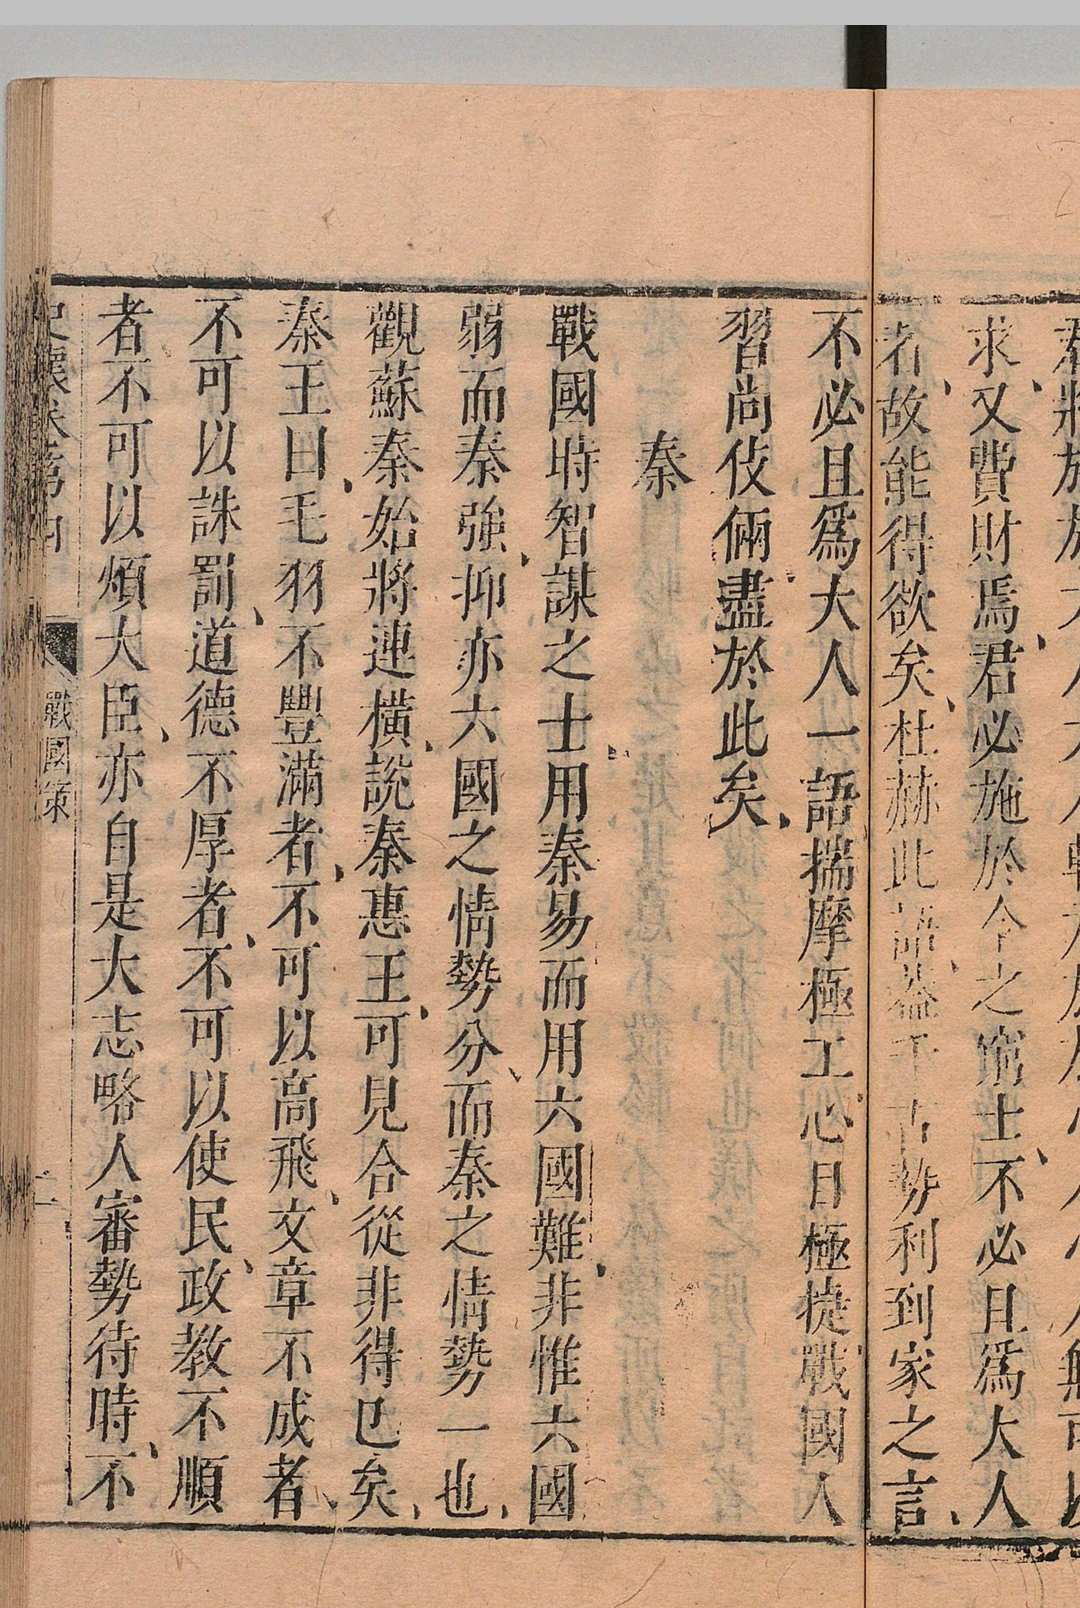 求又費財焉君必施於今之窮士不必且爲大人
者故能得欲矣杜赫此語蓋千古勢利到家之言
不必且爲大人一語揣摩極工心目極捷戰國人
習尚伎倆盡於此矣
秦
戰國時智謀之士用秦易而用六國難非惟六國
弱而秦強抑亦六國之情勢分而秦之情勢一也
觀蘇秦始將連橫說秦惠王可見合從非得已矣
秦王曰毛羽不豐滿者不可以高飛文章不成者
不可以誅罰道德不厚者不可以使民政教不順
者不可以煩大臣亦自是大志略人審勢待時不
史懷卷第四 戰國策 二